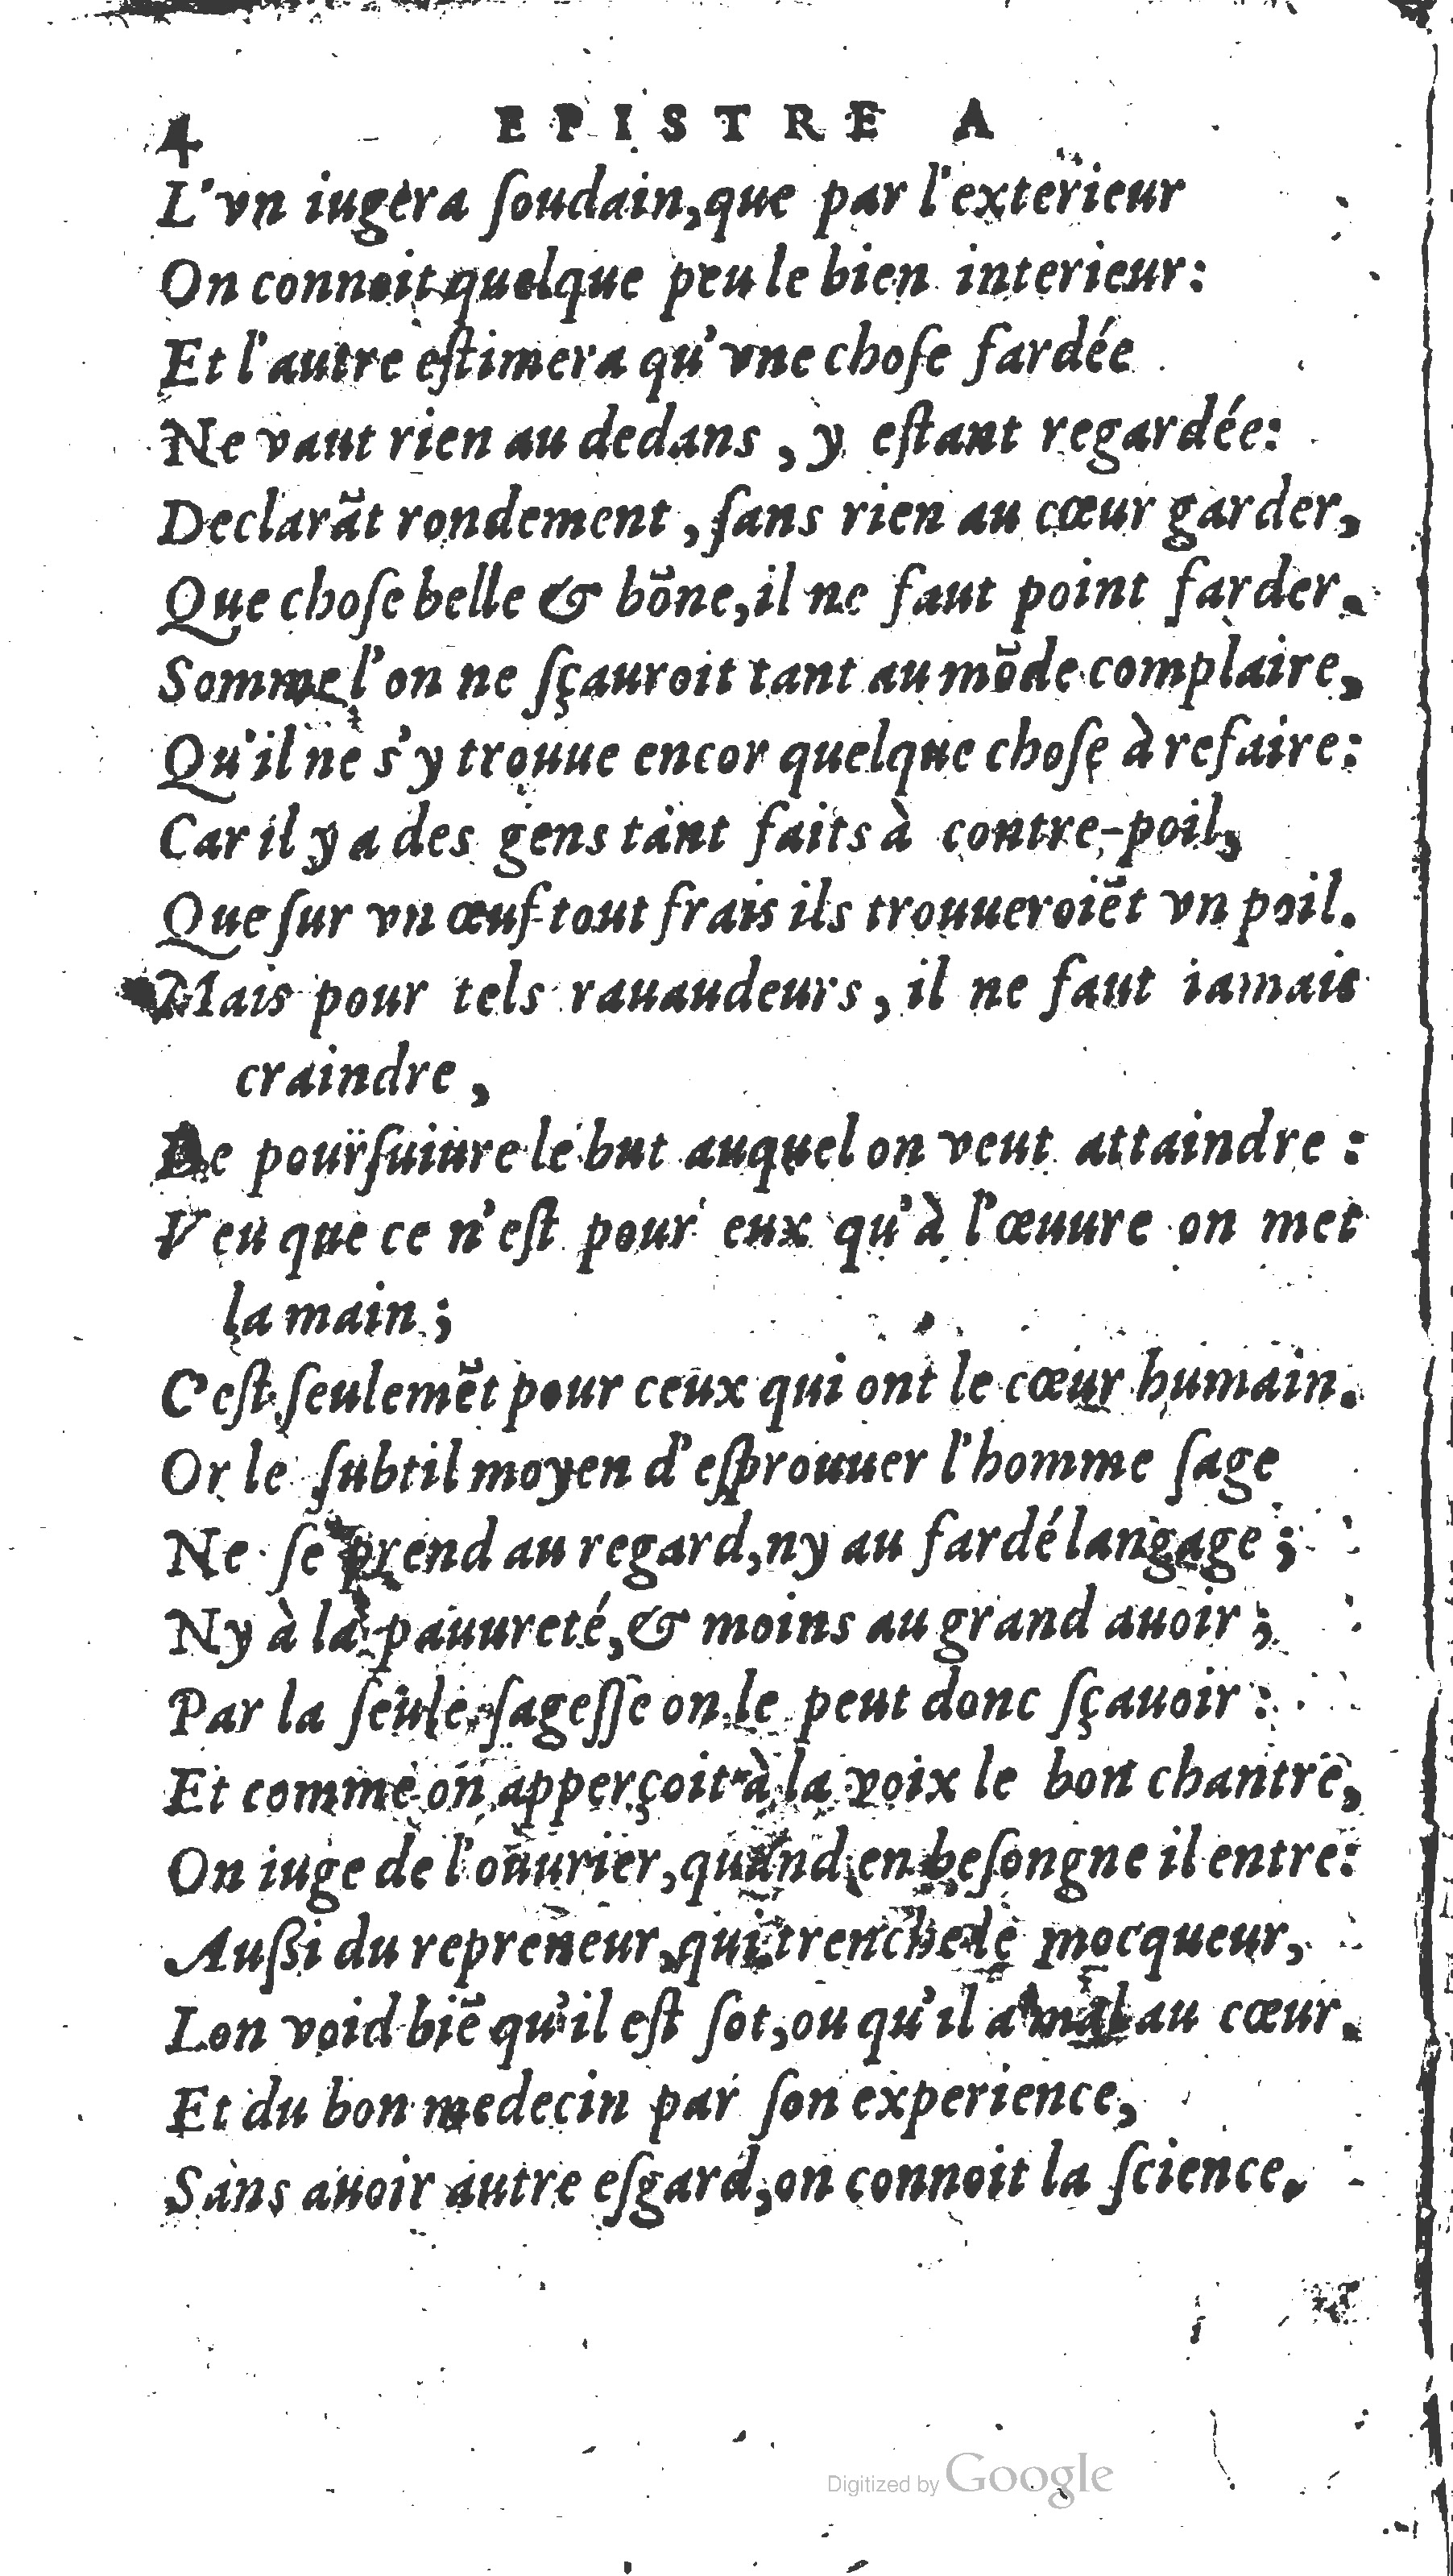 4 EPISTRE A
L'vn iugera ſoudain, que par l'exterieur
On connoit quelque peu le bien interieur:
Et l'autre eſtimera qu'vne choſe fardée
Ne vaut rien au dedans, y eſtant regardée:
Declarãt rondement, ſans rien au cœur garder,
Que choſe belle & bõne, il ne faut point farder.
Somme l'on ne ſçauroit tant au mõde complaire,
Qu'il ne s'y trouue encor quelque choſe à refaire:
Car il y a des gens tant faits à contre-poil,
Que ſur vn œuf tout frais ils trouueroiẽt vn poil.
Mais pour tels rauaudeurs, il ne faut iamais
craindre,
De pourſuiure le but auquel on veut attaindre:
Veu que ce n'eſt pour eux qu'à l'œuure on met
la main;
C'eſt ſeulemẽt pour ceux qui ont le cœur humain.
Or le ſubtil moyen d'eſprouuer l'homme ſage
Ne ſe prend au regard, ny au fardé langage;
Ny à la pauureté, & moins au grand auoir;
Par la ſeule ſageſſe on le peut donc ſçauoir:
Et comme on apperçoit à la voix le bon chantre,
On iuge de l'ouurier, quand en beſongne il entre:
Außi du repreneur, qui trenche le mocqueur,
Lon void biẽ qu'il eſt ſot, ou qu'il a mal au cœur.
Et du bon medecin par ſon experience,
Sans auoir autre eſgard, on connoit la ſcience.
Digitized by Google